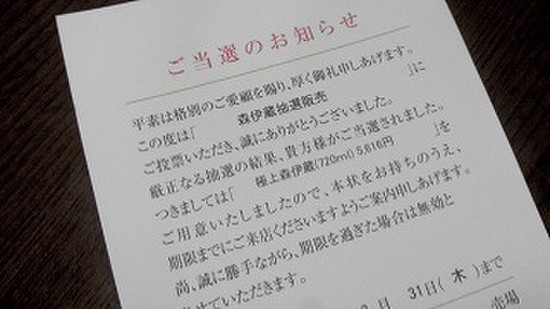 ご当選のお知らせ
平素は格別のご愛顧を賜り、厚く御礼申しあげます。
この度は「 森伊蔵抽選販売 」に
ご投票いただき、誠にありがとうございました。
厳正なる抽選の結果、貴方様がご当選されました。
つきましては「 極上森伊蔵(720ml) 5,816円 」を
ご用意いたしましたので、本状をお持ちのうえ、
期限までにご来店くださいますようご案内申しあげます。
尚、誠に勝手ながら、期限を過ぎた場合は無効と
せていただきます。
月 31日(木)まで
売場